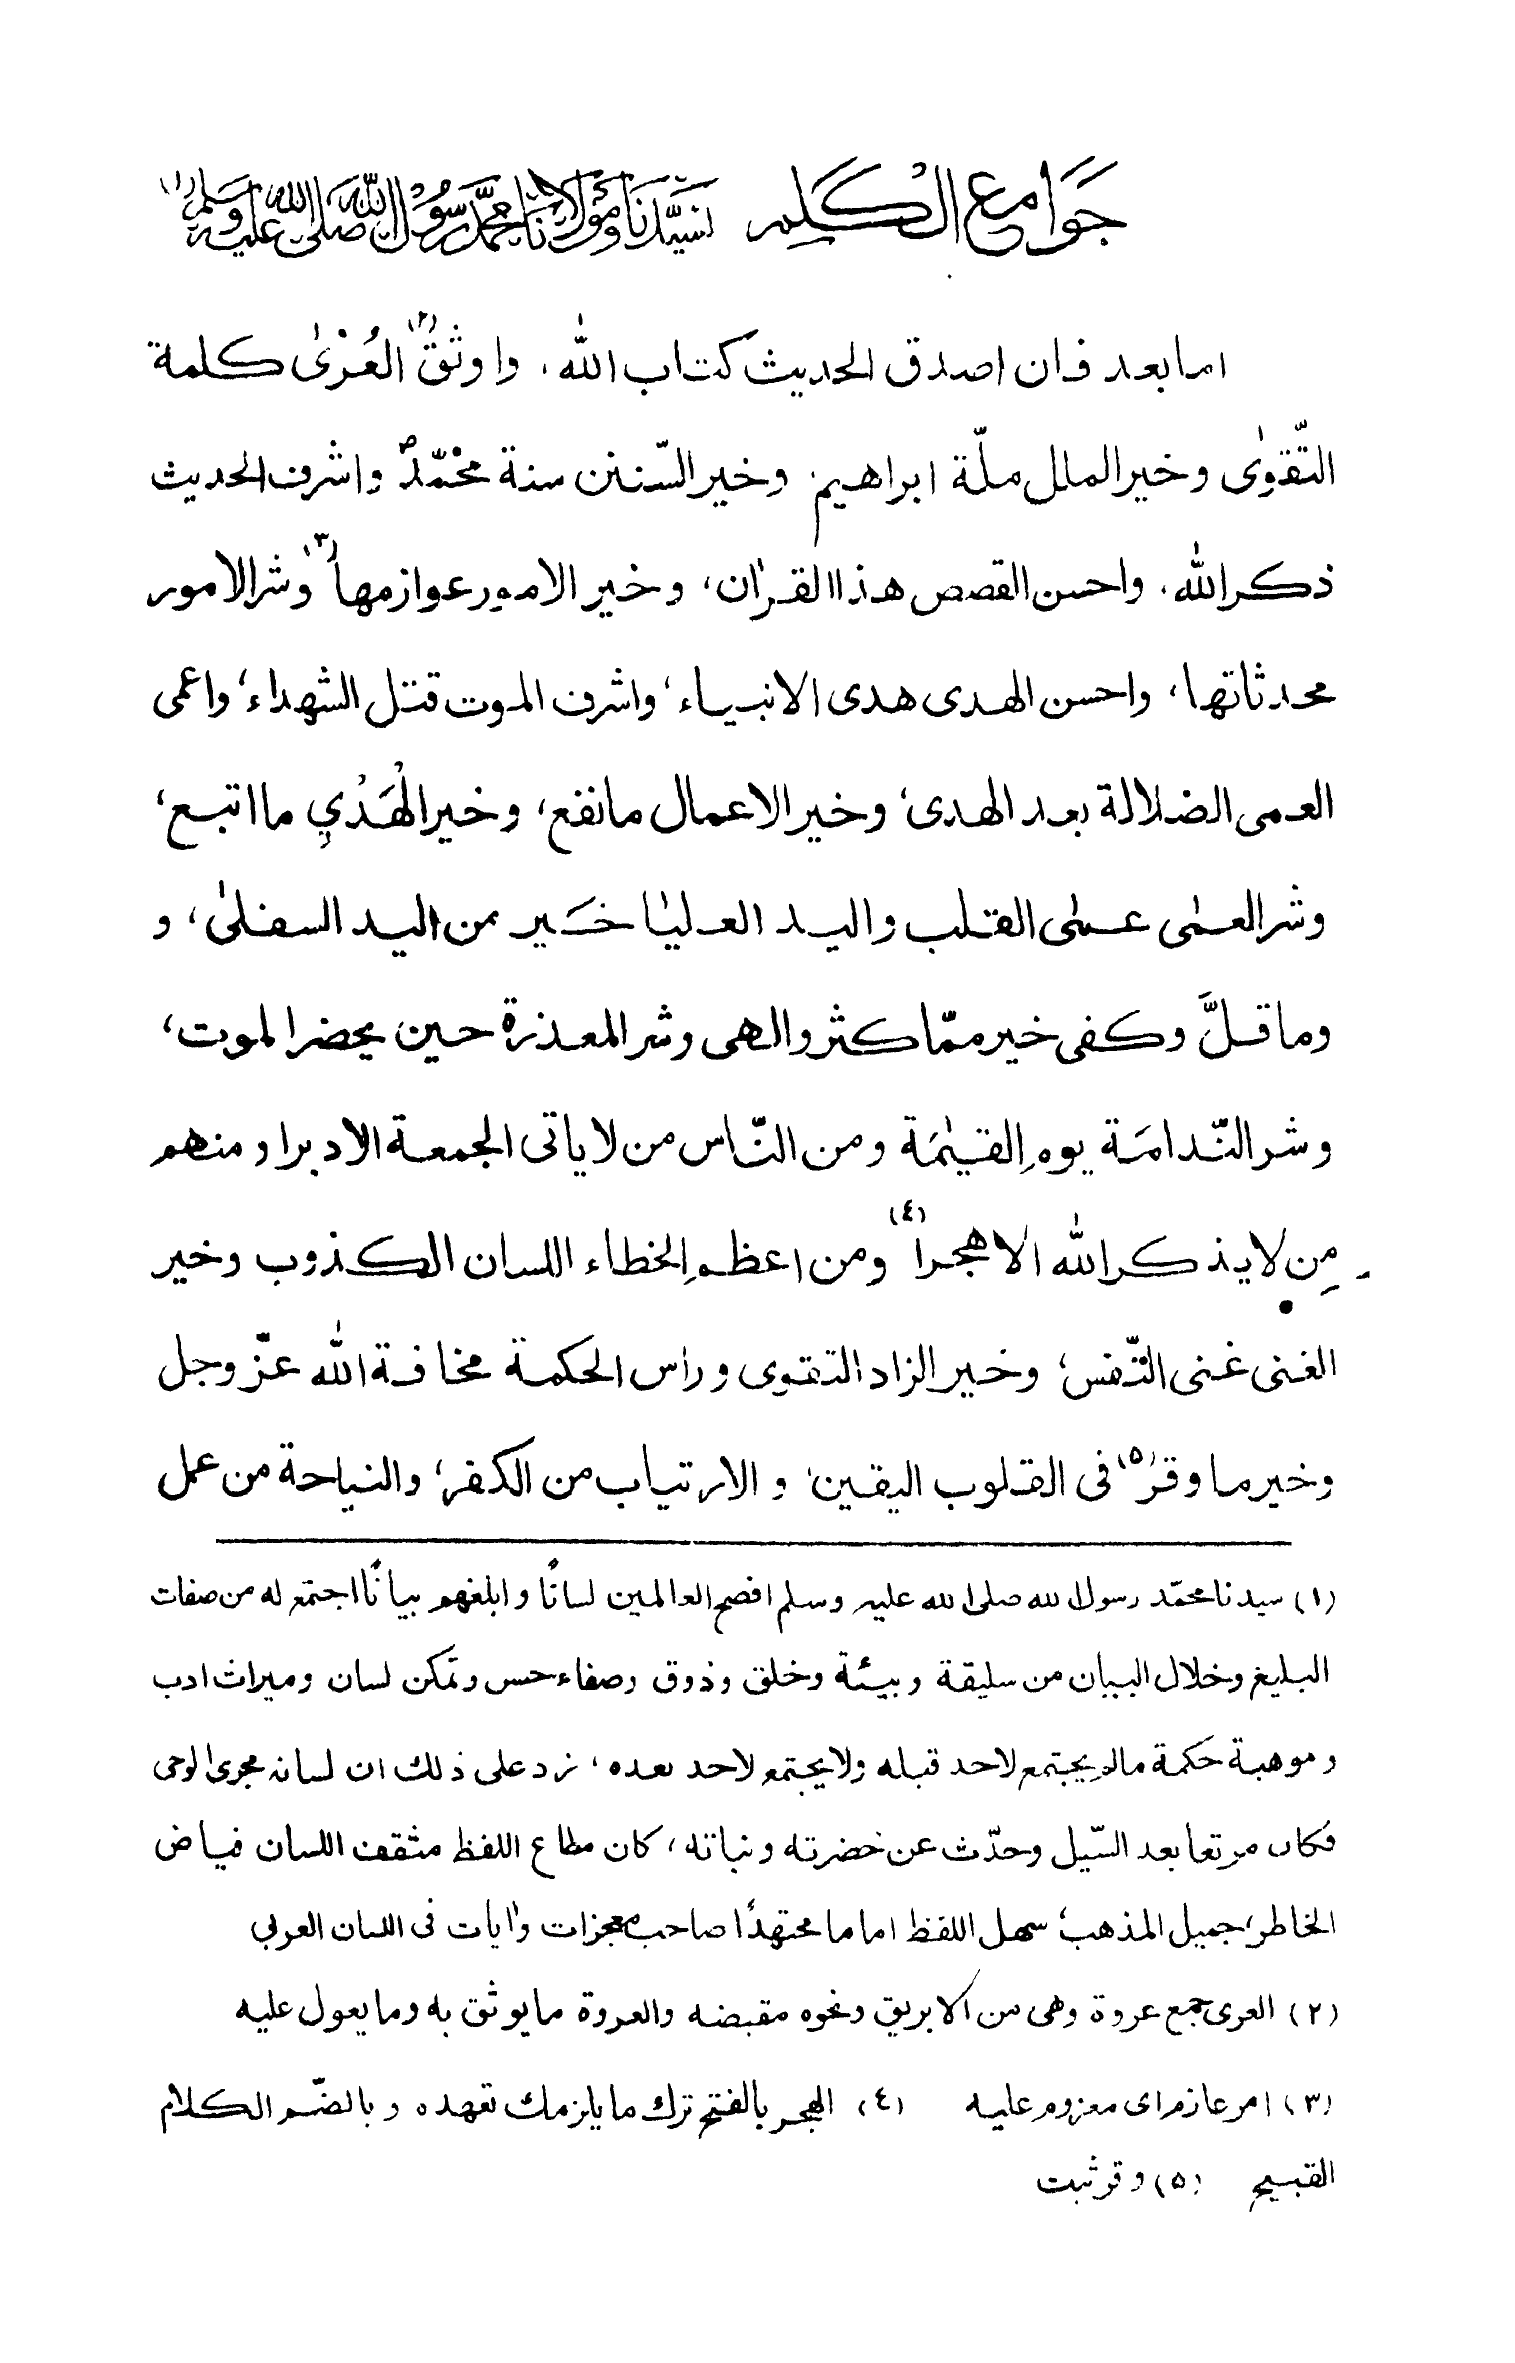 جَوَامع الْكَلِم لسَيِّدنَا وَمَوْلَانَا مُحَمَّد رسُوْل اللّٰه صَلى الله عَليه وسَلم (١)
اما بعد فان اصدق الحديث كتاب اللّٰه، واوثق (٢) العُرْىٰ كلمة
التّقوٰى وخير الملل ملّة ابراهيم، وخير السّنن سنة محْمّدؐ واشرف الحديث
ذكر اللّٰه، واحسن القصص هذا القرٰان، وخير الامور عوازمها (٣) وشر الامور
محدثاتها، واحسن الهدى هدى الانبياء، واشرف الموت قتل الشهداء، واعمى
العمى الضلالة بعد الهدى، وخير الاعمال ما نفع، وخير الْهَدْيِ ما اتبع،
وشر العمٰى عمٰى القلب واليد العليٰا خَير من اليد السفلىٰ، و
وما قلَّ وكفى خير ممّا كثر والهى وشر المعذرة حين يحضر الموت،
وشر النّدامَة يوم القيٰمَة ومن النّاس من لا ياتى الجمعة الا دبرا ومنهم
مِن لا يذكر اللّٰه الا هجرا (٤) ومن اعظم الخطاء اللسان الكذوب وخير
الغنى غنى النّفس، وخير الزاد التقوى وراس الحكمة مخافة اللّٰه عزّ وجل
وخير ما وقر (٥) فى القلوب اليقين، والارتياب من الكفر، والنياحة من عمل
(١) سيدنا محمّد رسول الله صلى الله عليه وسلم افصح العالمين لسانًا وابلغهم بيانًا اجتمع له من صفات
البليغ وخلال البيان من سليقة وبيئة وخلق وذوق وصفاء حس وتمكن لسان وميراث ادب
وموهبة حكمة مالم يجتمع لاحد قبله ولا يجتمع لاحد بعده، نزد على ذلك ان لسانه مجرى الوحى
فكان مرتعا بعد السّيل وحدّث عن خضرته ونباته، كان مطاع اللفظ مثقف اللسان فياض
الخاطر، جميل المذهب، سهل اللفظ اماما مجتهدًا صاحب معجزات وٰايات فى اللسان العربى
(٢) العرى جمع عروة وهى من الابريق ونحوه مقبضه والعروة ما يوثق به وما يعول عليه
(٣) امر عازم اى معزوم عليه (٤) الهجر بالفتح ترك ما يلزمك تعهده وبالضّم الكلام
القبيح (٥) وقر ثبت